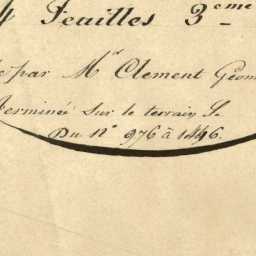 4 Feuilles 3eme
par Mr Clement Géom
Terminée sur le terrain
Du No 976 à 1446.